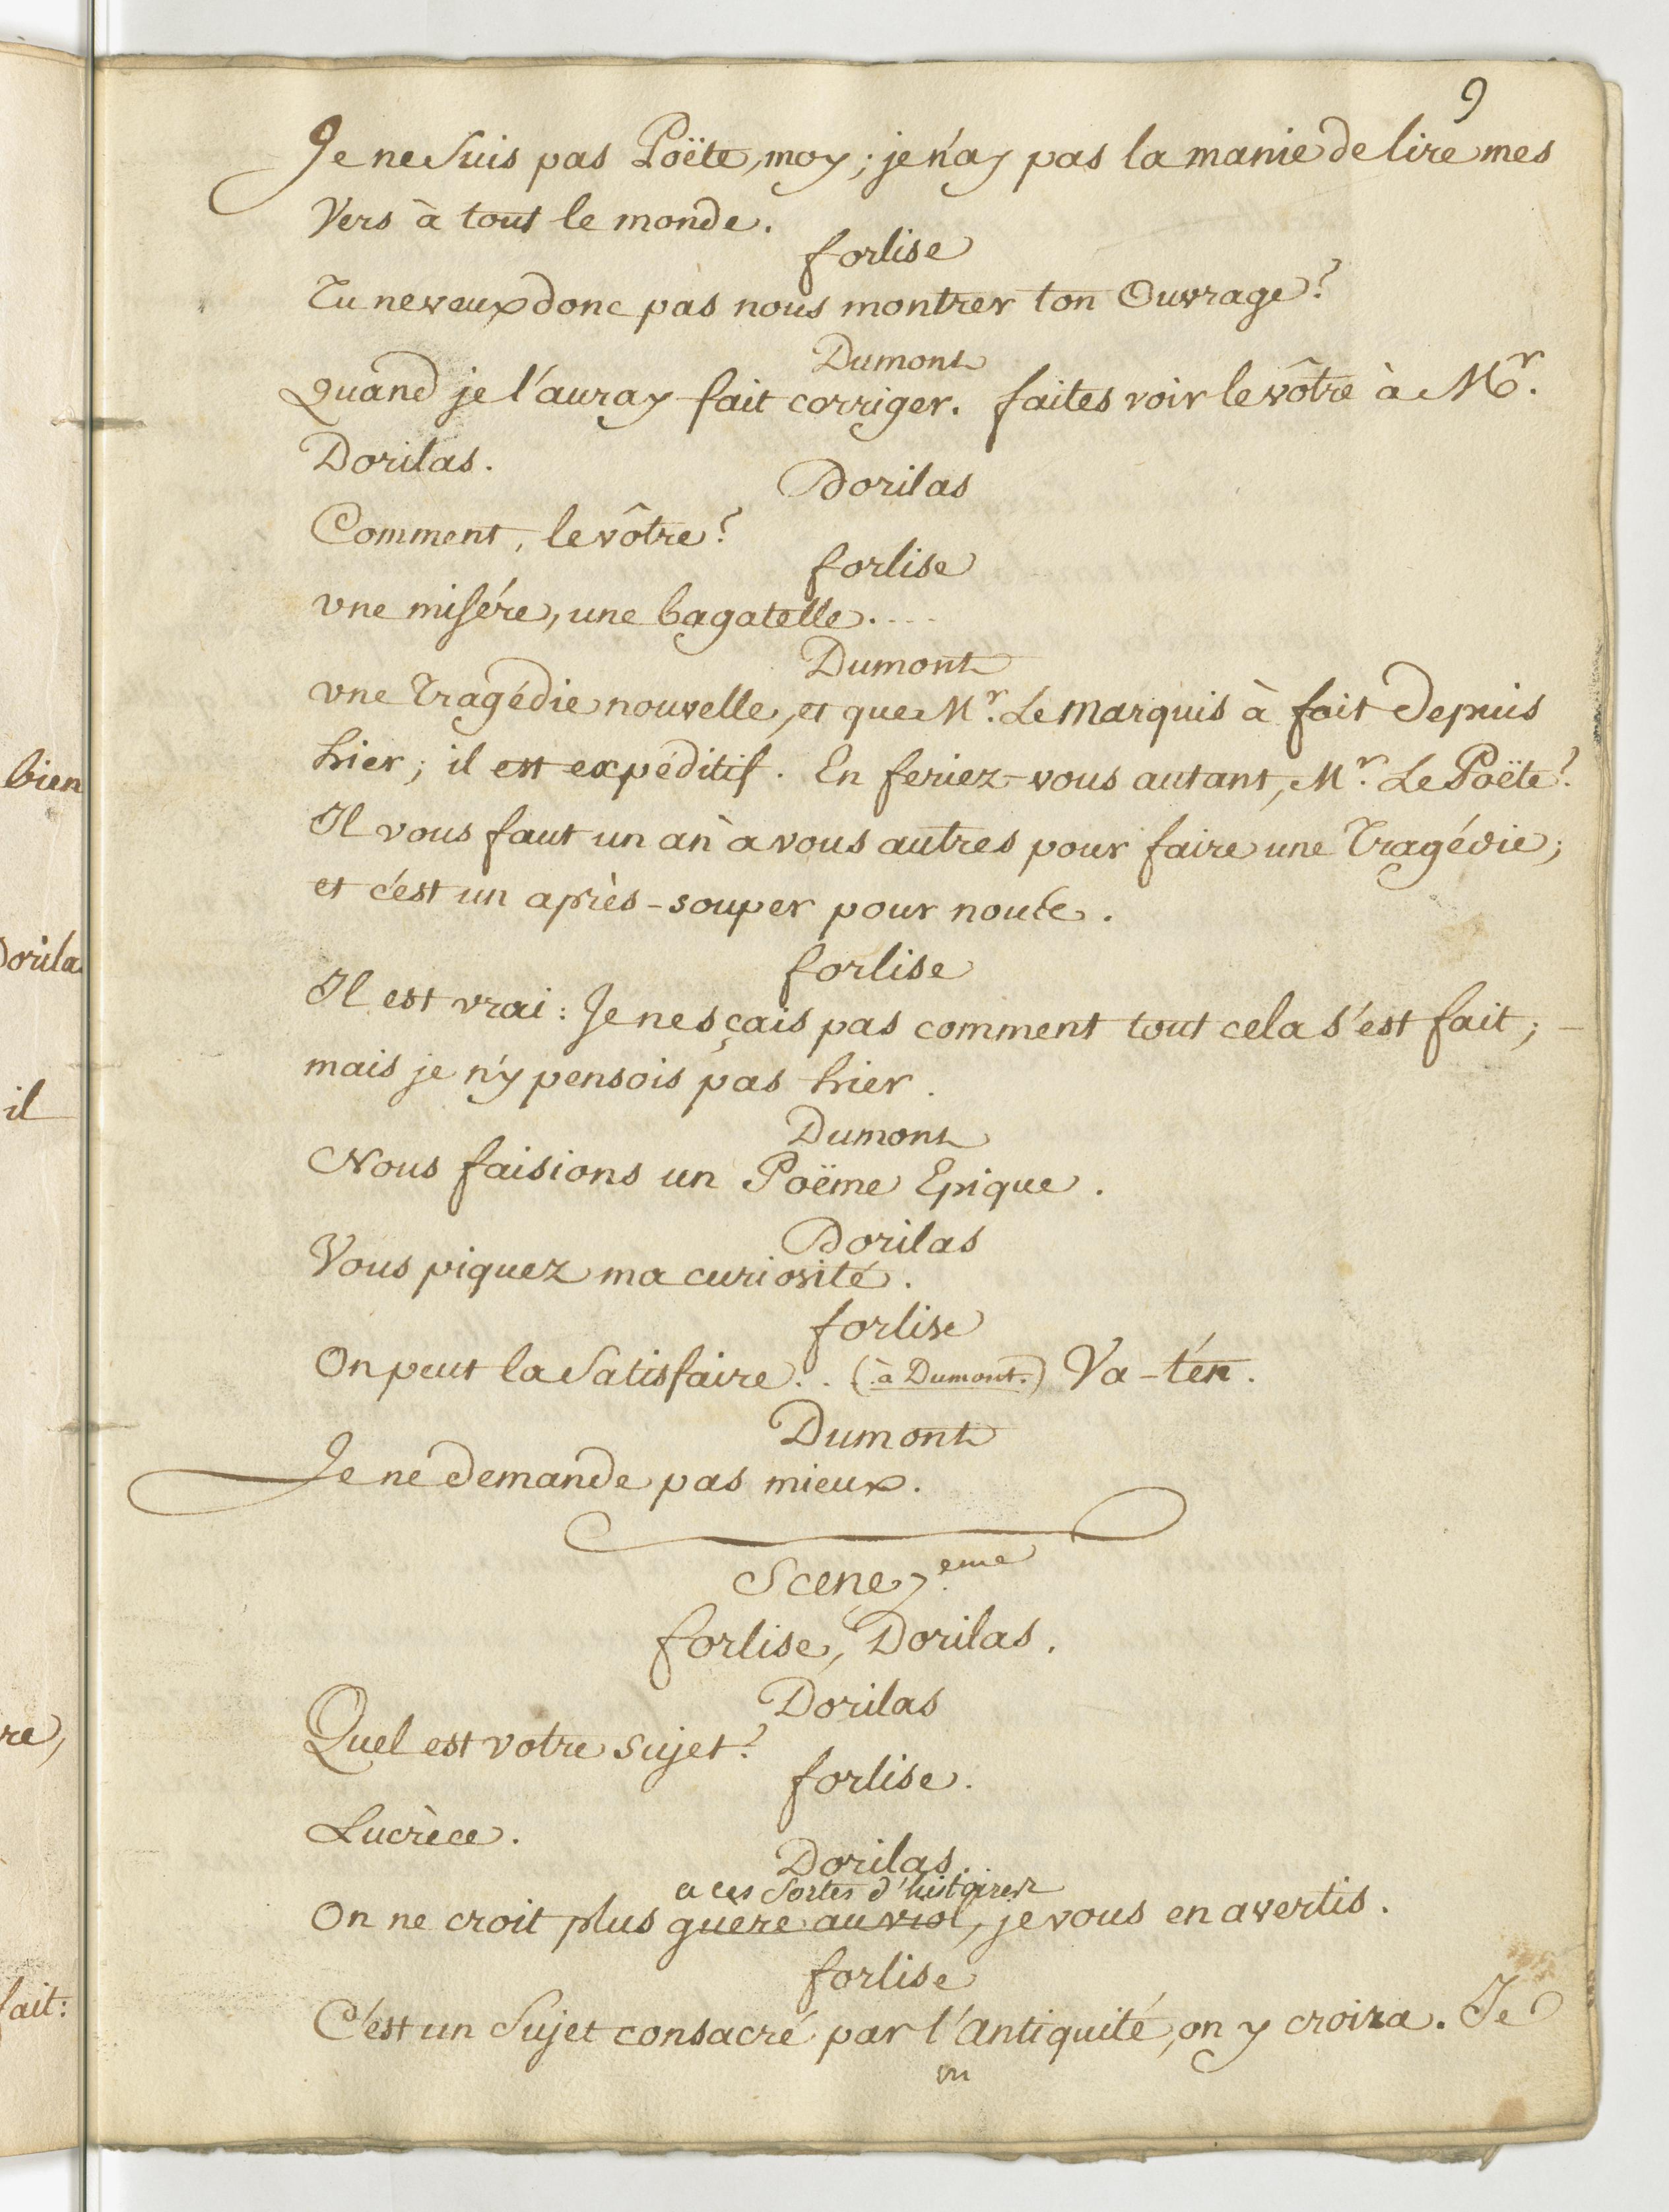 9
Je ne Suis pas Poëte, moy; je n'ay pas la manie de lire mes
Vers à tout le monde.
forlise
Tu ne veux donc pas nous montrer ton Ouvrage?
Dumont
Quand je l'auray fait corriger. faites voir le vôtre à Mr.
Dorilas.
Dorilas
Comment, le vôtre?
forlise
une misére, une bagatelle....
Dumont
une Tragédie nouvelle, et que Mr. Le Marquis à fait depuis
hier; il est expéditif. En feriez-vous autant, Mr. Le Poëte?
Il vous faut un an à vous autres pour faire une Tragédie;
et c'est un après-souper pour nous.
forlise
Il est vrai: Je ne sçais pas comment tout cela s'est fait;
mais je n'y pensois pas hier.
Dumont
Nous faisions un Poëme Epique.
Dorilas
Vous piquez ma curiosité.
forlise
On peut la Satisfaire.. (à Dumont.) Va-t'én.
Dumont
Je ne demande pas mieux.
Scene 7.eme
forlise, Dorilas.
Dorilas
Quel est votre sujet?
forlise.
Lucrèce.
Dorilas.
a ces Sortes d'histoires
On ne croit plus guère au viol, je vous en avertis.
forlise
C'est un Sujet consacré par l'antiquité, on y croira. Je
bien
Dorila
il
re,
fait: